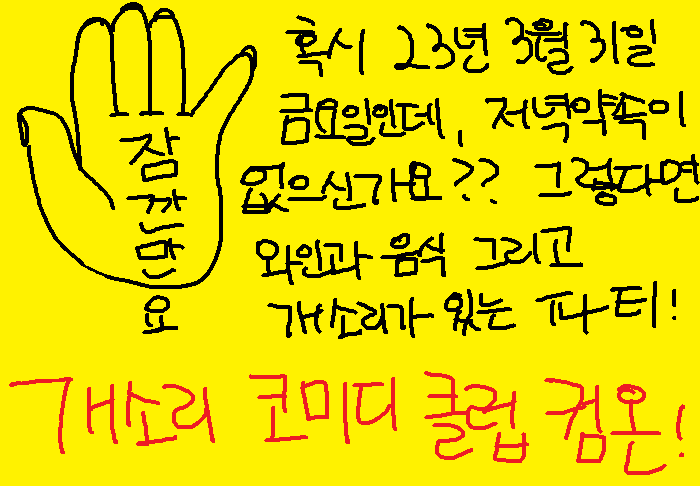 잠
깐
만
요
혹시 23년 3월 31일
금요일인데, 저녁약속이
없으신가요?? 그렇다면
와인과 음식 그리고
개소리가 있는 파티!
개소리 코미디 클럽 컴온!